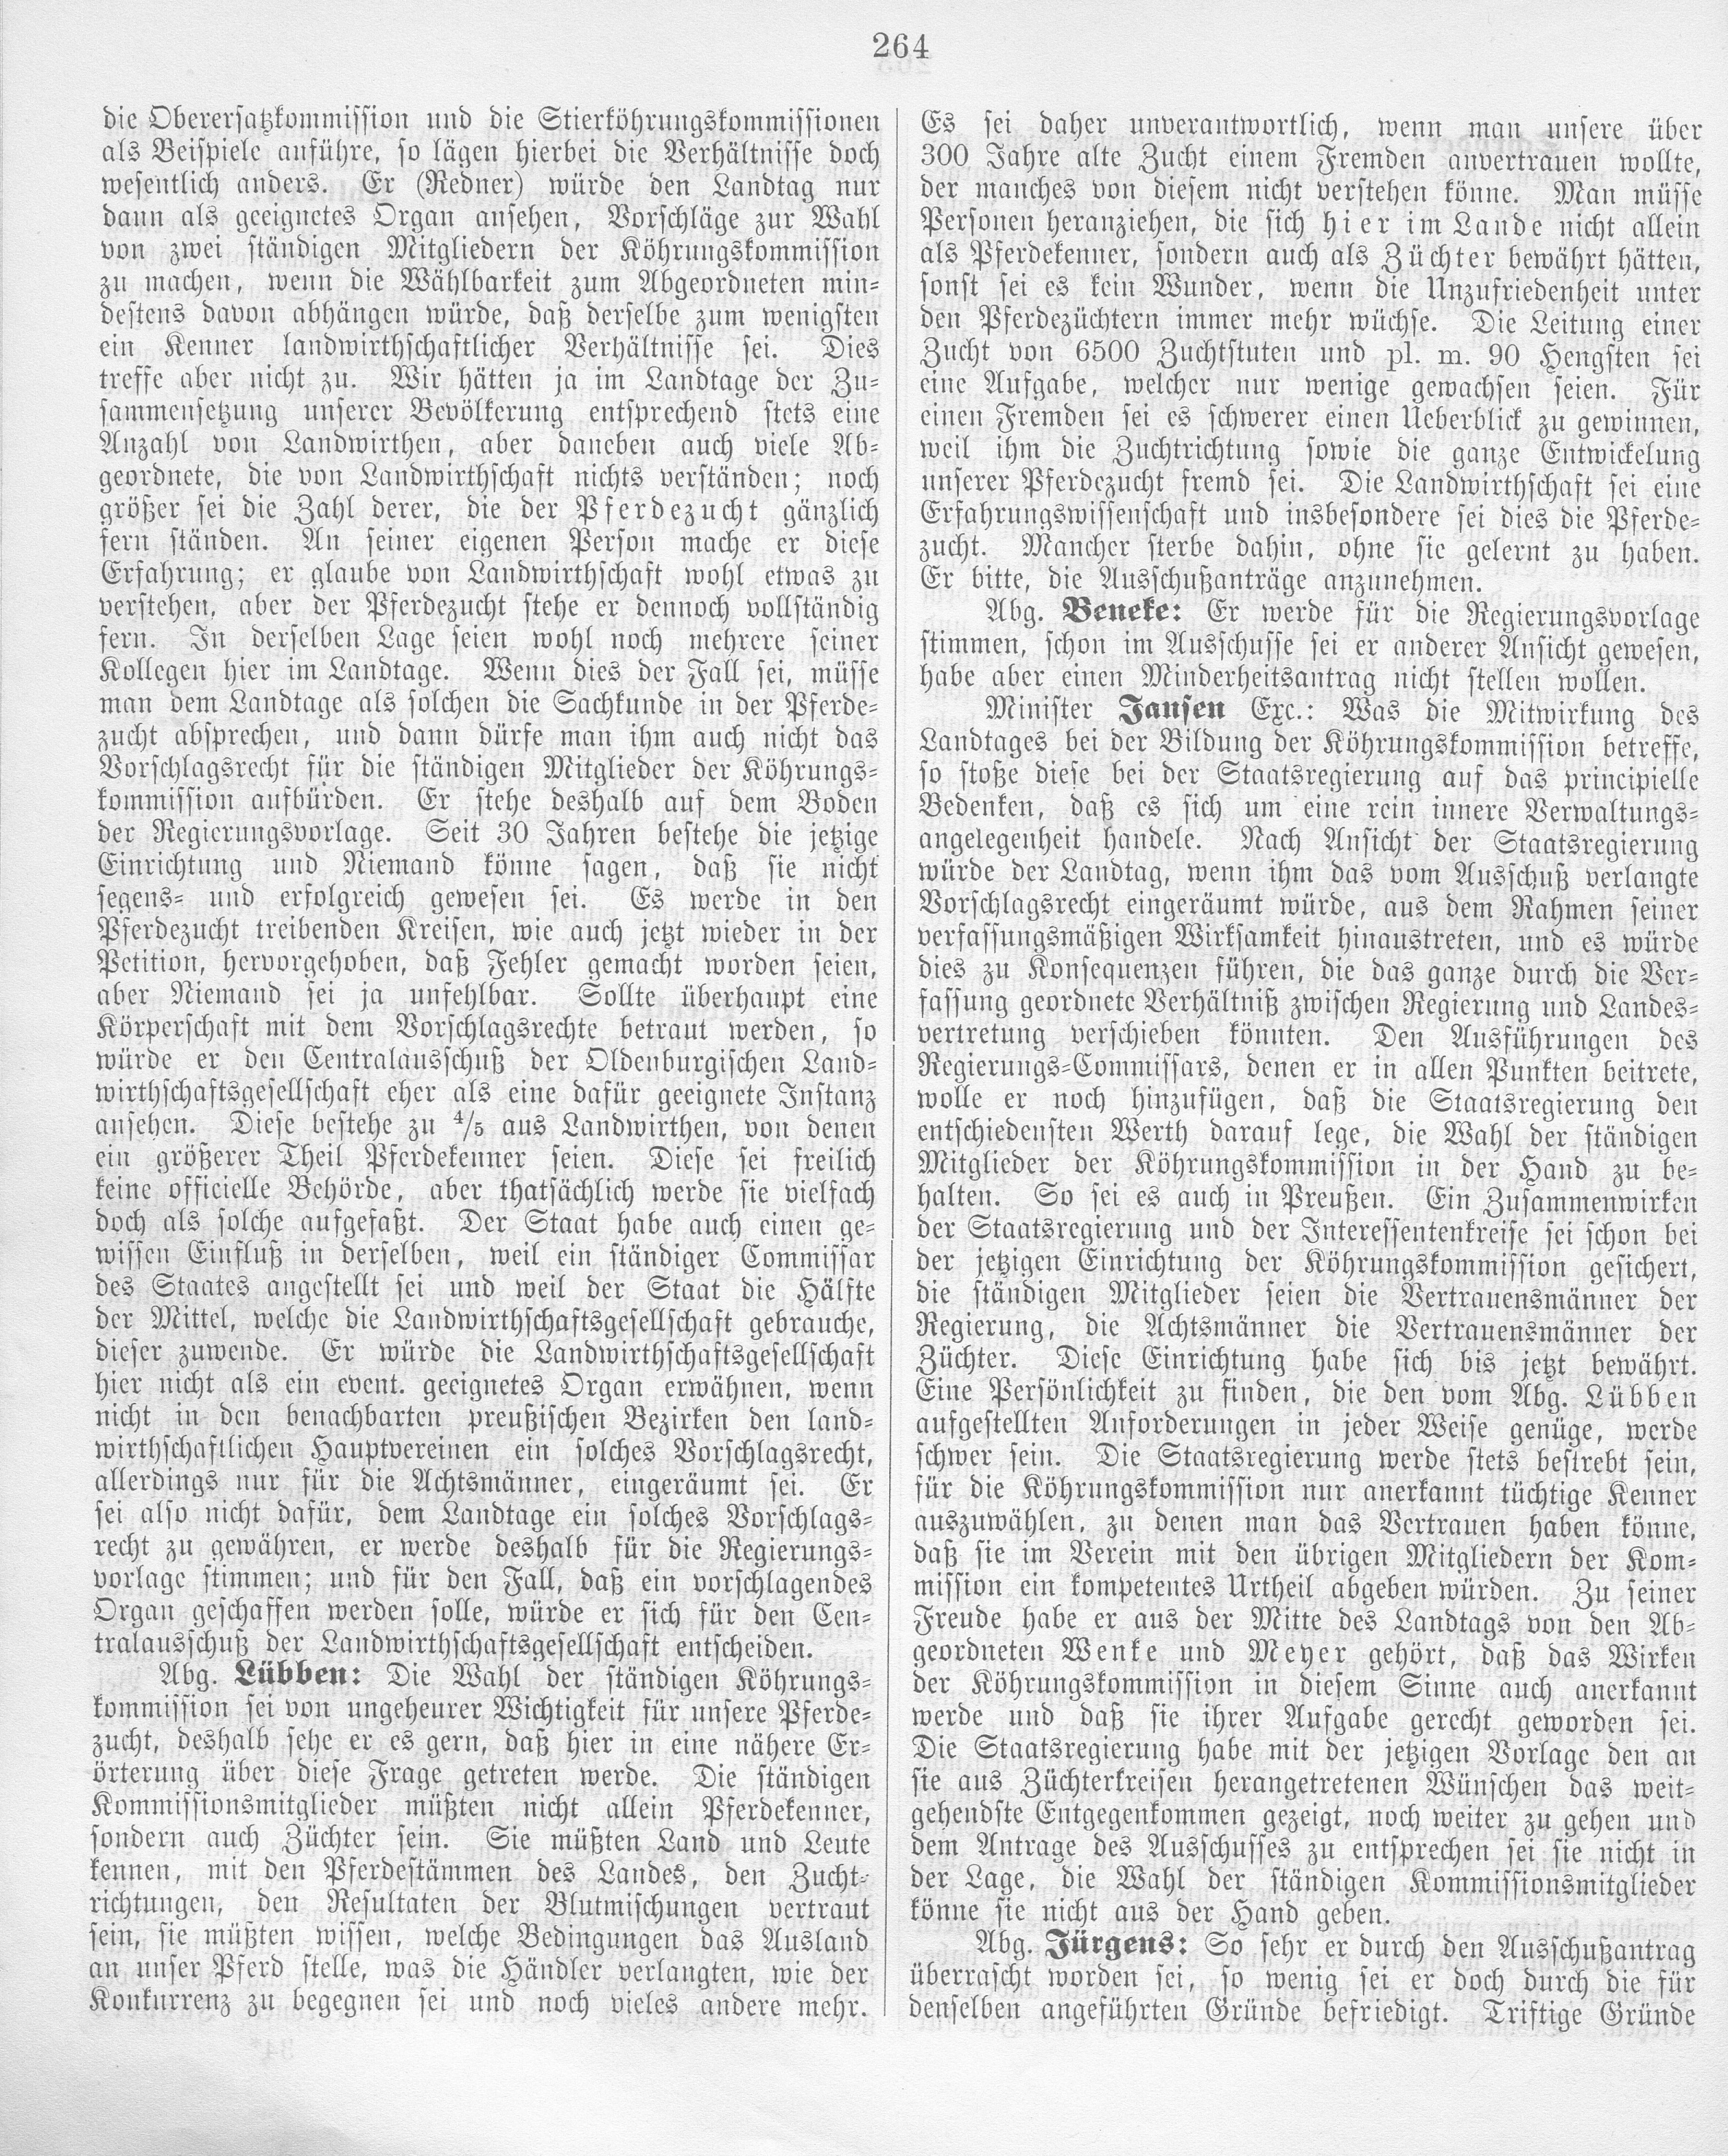 264
die Oberersatzkommission und die Stierköhrungskommissionen
als Beispiele anführe, so lägen hierbei die Verhältnisse doch
wesentlich anders. Er (Redner) würde den Landtag nur
dann als geeignetes Organ ansehen, Vorschläge zur Wahl
von zwei ständigen Mitgliedern der Köhrungskommission
zu machen, wenn die Wählbarkeit zum Abgeordneten min-
destens davon abhängen würde, daß derselbe zum wenigsten
ein Kenner landwirthschaftlicher Verhältnisse sei. Dies
treffe aber nicht zu. Wir hätten ja im Landtage der Zu-
sammensetzung unserer Bevölkerung entsprechend stets eine
Anzahl von Landwirthen, aber daneben auch viele Ab-
geordnete, die von Landwirthschaft nichts verständen; noch
größer sei die Zahl derer, die der Pferdezucht gänzlich
fern ständen. An seiner eigenen Person mache er diese
Erfahrung; er glaube von Landwirthschaft wohl etwas zu
verstehen, aber der Pferdezucht stehe er dennoch vollständig
fern. In derselben Lage seien wohl noch mehrere seiner
Kollegen hier im Landtage. Wenn dies der Fall sei, müsse
man dem Landtage als solchen die Sachkunde in der Pferde-
zucht absprechen, und dann dürfe man ihm auch nicht das
Vorschlagsrecht für die ständigen Mitglieder der Köhrungs-
kommission aufbürden. Er stehe deshalb auf dem Boden
der Regierungsvorlage. Seit 30 Jahren bestehe die jetzige
Einrichtung und Niemand könne sagen, daß sie nicht
segens- und erfolgreich gewesen sei. Es werde in den
Pferdezucht treibenden Kreisen, wie auch jetzt wieder in der
Petition, hervorgehoben, daß Fehler gemacht worden seien,
aber Niemand sei ja unfehlbar. Sollte überhaupt eine
Körperschaft mit dem Vorschlagsrechte betraut werden, so
würde er den Centralausschuß der Oldenburgischen Land-
wirthschaftsgesellschaft eher als eine dafür geeignete Instanz
ansehen. Diese bestehe zu 4/5 aus Landwirthen, von denen
ein größerer Theil Pferdekenner seien. Diese sei freilich
keine officielle Behörde, aber thatsächlich werde sie vielfach
doch als solche aufgefaßt. Der Staat habe auch einen ge-
wissen Einfluß in derselben, weil ein ständiger Commissar
des Staates angestellt sei und weil der Staat die Hälfte
der Mittel, welche die Landwirthschaftsgesellschaft gebrauche,
dieser zuwende. Er würde die Landwirthschaftsgesellschaft
hier nicht als ein event. geeignetes Organ erwähnen, wenn
nicht in den benachbarten preußischen Bezirken den land-
wirthschaftlichen Hauptvereinen ein solches Vorschlagsrecht,
allerdings nur für die Achtsmänner, eingeräumt sei. Er
sei also nicht dafür, dem Landtage ein solches Vorschlags-
recht zu gewähren, er werde deshalb für die Regierungs-
vorlage stimmen; und für den Fall, daß ein vorschlagendes
Organ geschaffen werden solle, würde er sich für den Cen-
tralausschuß der Landwirthschaftsgesellschaft entscheiden.
Abg. Lübben: Die Wahl der ständigen Köhrungs-
kommission sei von ungeheurer Wichtigkeit für unsere Pferde-
zucht, deshalb sehe er es gern, daß hier in eine nähere Er-
örterung über diese Frage getreten werde. Die ständigen
Kommissionsmitglieder müßten nicht allein Pferdekenner,
sondern auch Züchter sein. Sie müßten Land und Leute
kennen, mit den Pferdestämmen des Landes, den Zucht-
richtungen, den Resultaten der Blutmischungen vertraut
sein, sie müßten wissen, welche Bedingungen das Ausland
an unser Pferd stelle, was die Händler verlangten, wie der
Konkurrenz zu begegnen sei und noch vieles andere mehr.
Es sei daher unverantwortlich, wenn man unsere über
300 Jahre alte Zucht einem Fremden anvertrauen wollte,
der manches von diesem nicht verstehen könne. Man müsse
Personen heranziehen, die sich hier im Lande nicht allein
als Pferdekenner, sondern auch als Züchter bewährt hätten,
sonst sei es kein Wunder, wenn die Unzufriedenheit unter
den Pferdezüchtern immer mehr wüchse. Die Leitung einer
Zucht von 6500 Zuchtstuten und pl. m. 90 Hengsten sei
eine Aufgabe, welcher nur wenige gewachsen seien. Für
einen Fremden sei es schwerer einen Ueberblick zu gewinnen,
weil ihm die Zuchtrichtung sowie die ganze Entwickelung
unserer Pferdezucht fremd sei. Die Landwirthschaft sei eine
Erfahrungswissenschaft und insbesondere sei dies die Pferde-
zucht. Mancher sterbe dahin, ohne sie gelernt zu haben.
Er bitte, die Ausschußanträge anzunehmen.
Abg. Beneke: Er werde für die Regierungsvorlage
stimmen, schon im Ausschusse sei er anderer Ansicht gewesen,
habe aber einen Minderheitsantrag nicht stellen wollen.
Minister Jansen Exc.: Was die Mitwirkung des
Landtages bei der Bildung der Köhrungskommission betreffe,
so stoße diese bei der Staatsregierung auf das principielle
Bedenken, daß es sich um eine rein innere Verwaltungs-
angelegenheit handele. Nach Ansicht der Staatsregierung
würde der Landtag, wenn ihm das vom Ausschuß verlangte
Vorschlagsrecht eingeräumt würde, aus dem Rahmen seiner
verfassungsmäßigen Wirksamkeit hinaustreten, und es würde
dies zu Konsequenzen führen, die das ganze durch die Ver-
fassung geordnete Verhältniß zwischen Regierung und Landes-
vertretung verschieben könnten. Den Ausführungen des
Regierungs-Commissars, denen er in allen Punkten beitrete,
wolle er noch hinzufügen, daß die Staatsregierung den
entschiedensten Werth darauf lege, die Wahl der ständigen
Mitglieder der Köhrungskommission in der Hand zu be-
halten. So sei es auch in Preußen. Ein Zusammenwirken
der Staatsregierung und der Interessentenkreise sei schon bei
der jetzigen Einrichtung der Köhrungskommission gesichert,
die ständigen Mitglieder seien die Vertrauensmänner der
Regierung, die Achtsmänner die Vertrauensmänner der
Züchter. Diese Einrichtung habe sich bis jetzt bewährt.
Eine Persönlichkeit zu finden, die den vom Abg. Lübben
aufgestellten Anforderungen in jeder Weise genüge, werde
schwer sein. Die Staatsregierung werde stets bestrebt sein,
für die Köhrungskommission nur anerkannt tüchtige Kenner
auszuwählen, zu denen man das Vertrauen haben könne,
daß sie im Verein mit den übrigen Mitgliedern der Kom-
mission ein kompetentes Urtheil abgeben würden. Zu seiner
Freude habe er aus der Mitte des Landtags von den Ab-
geordneten Wenke und Meyer gehört, daß das Wirken
der Köhrungskommission in diesem Sinne auch anerkannt
werde und daß sie ihrer Aufgabe gerecht geworden sei.
Die Staatsregierung habe mit der jetzigen Vorlage den an
sie aus Züchterkreisen herangetretenen Wünschen das weit-
gehendste Entgegenkommen gezeigt, noch weiter zu gehen und
dem Antrage des Ausschusses zu entsprechen sei sie nicht in
der Lage, die Wahl der ständigen Kommissionsmitglieder
könne sie nicht aus der Hand geben.
Abg. Jürgens: So sehr er durch den Ausschußantrag
überrascht worden sei, so wenig sei er doch durch die für
denselben angeführten Gründe befriedigt. Triftige Gründe